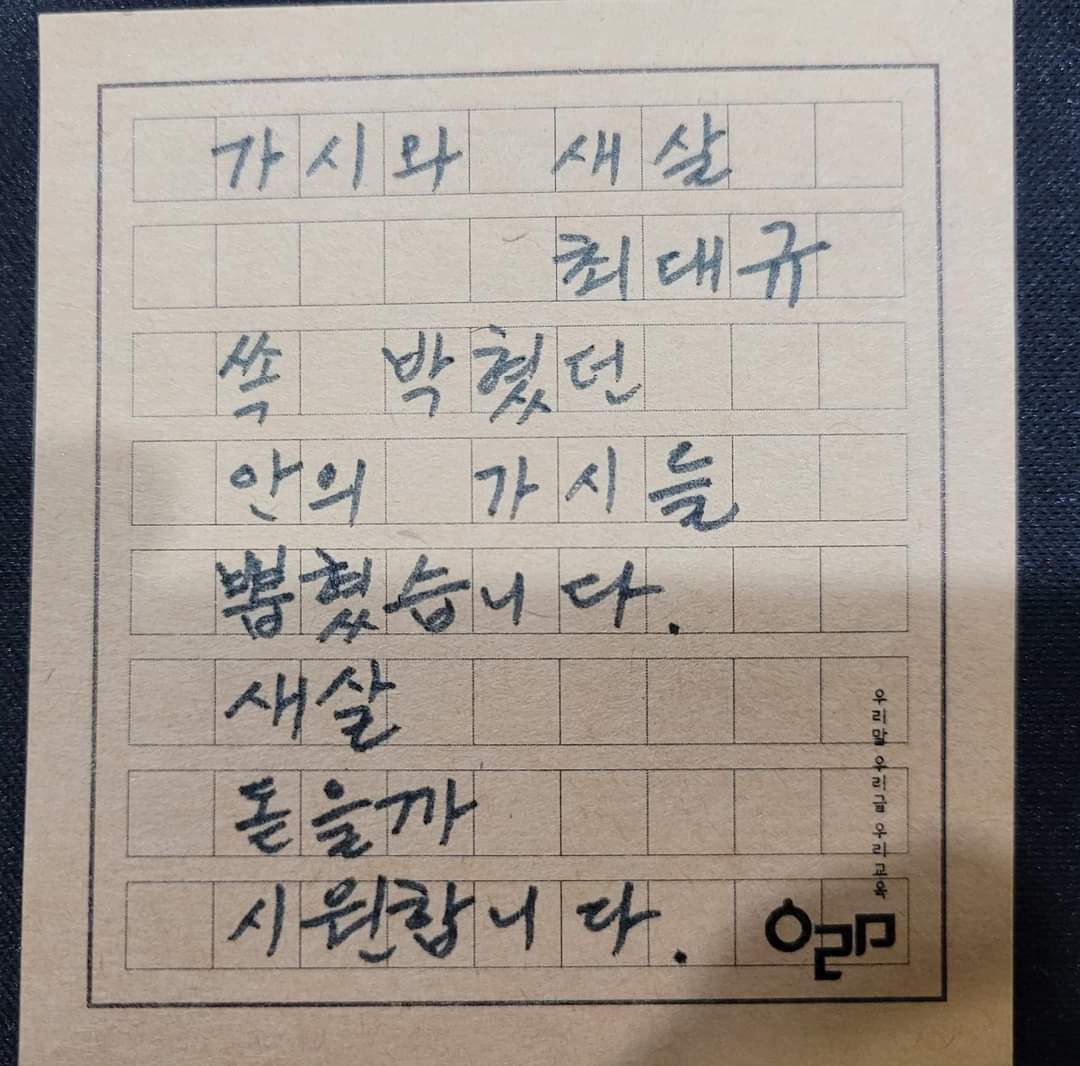 가시와 새살
최대규
쏙 박혔던
안의 가시들
뽑혔습니다.
새살
돋을까
시원합니다.
우리말 우리글 우리교육